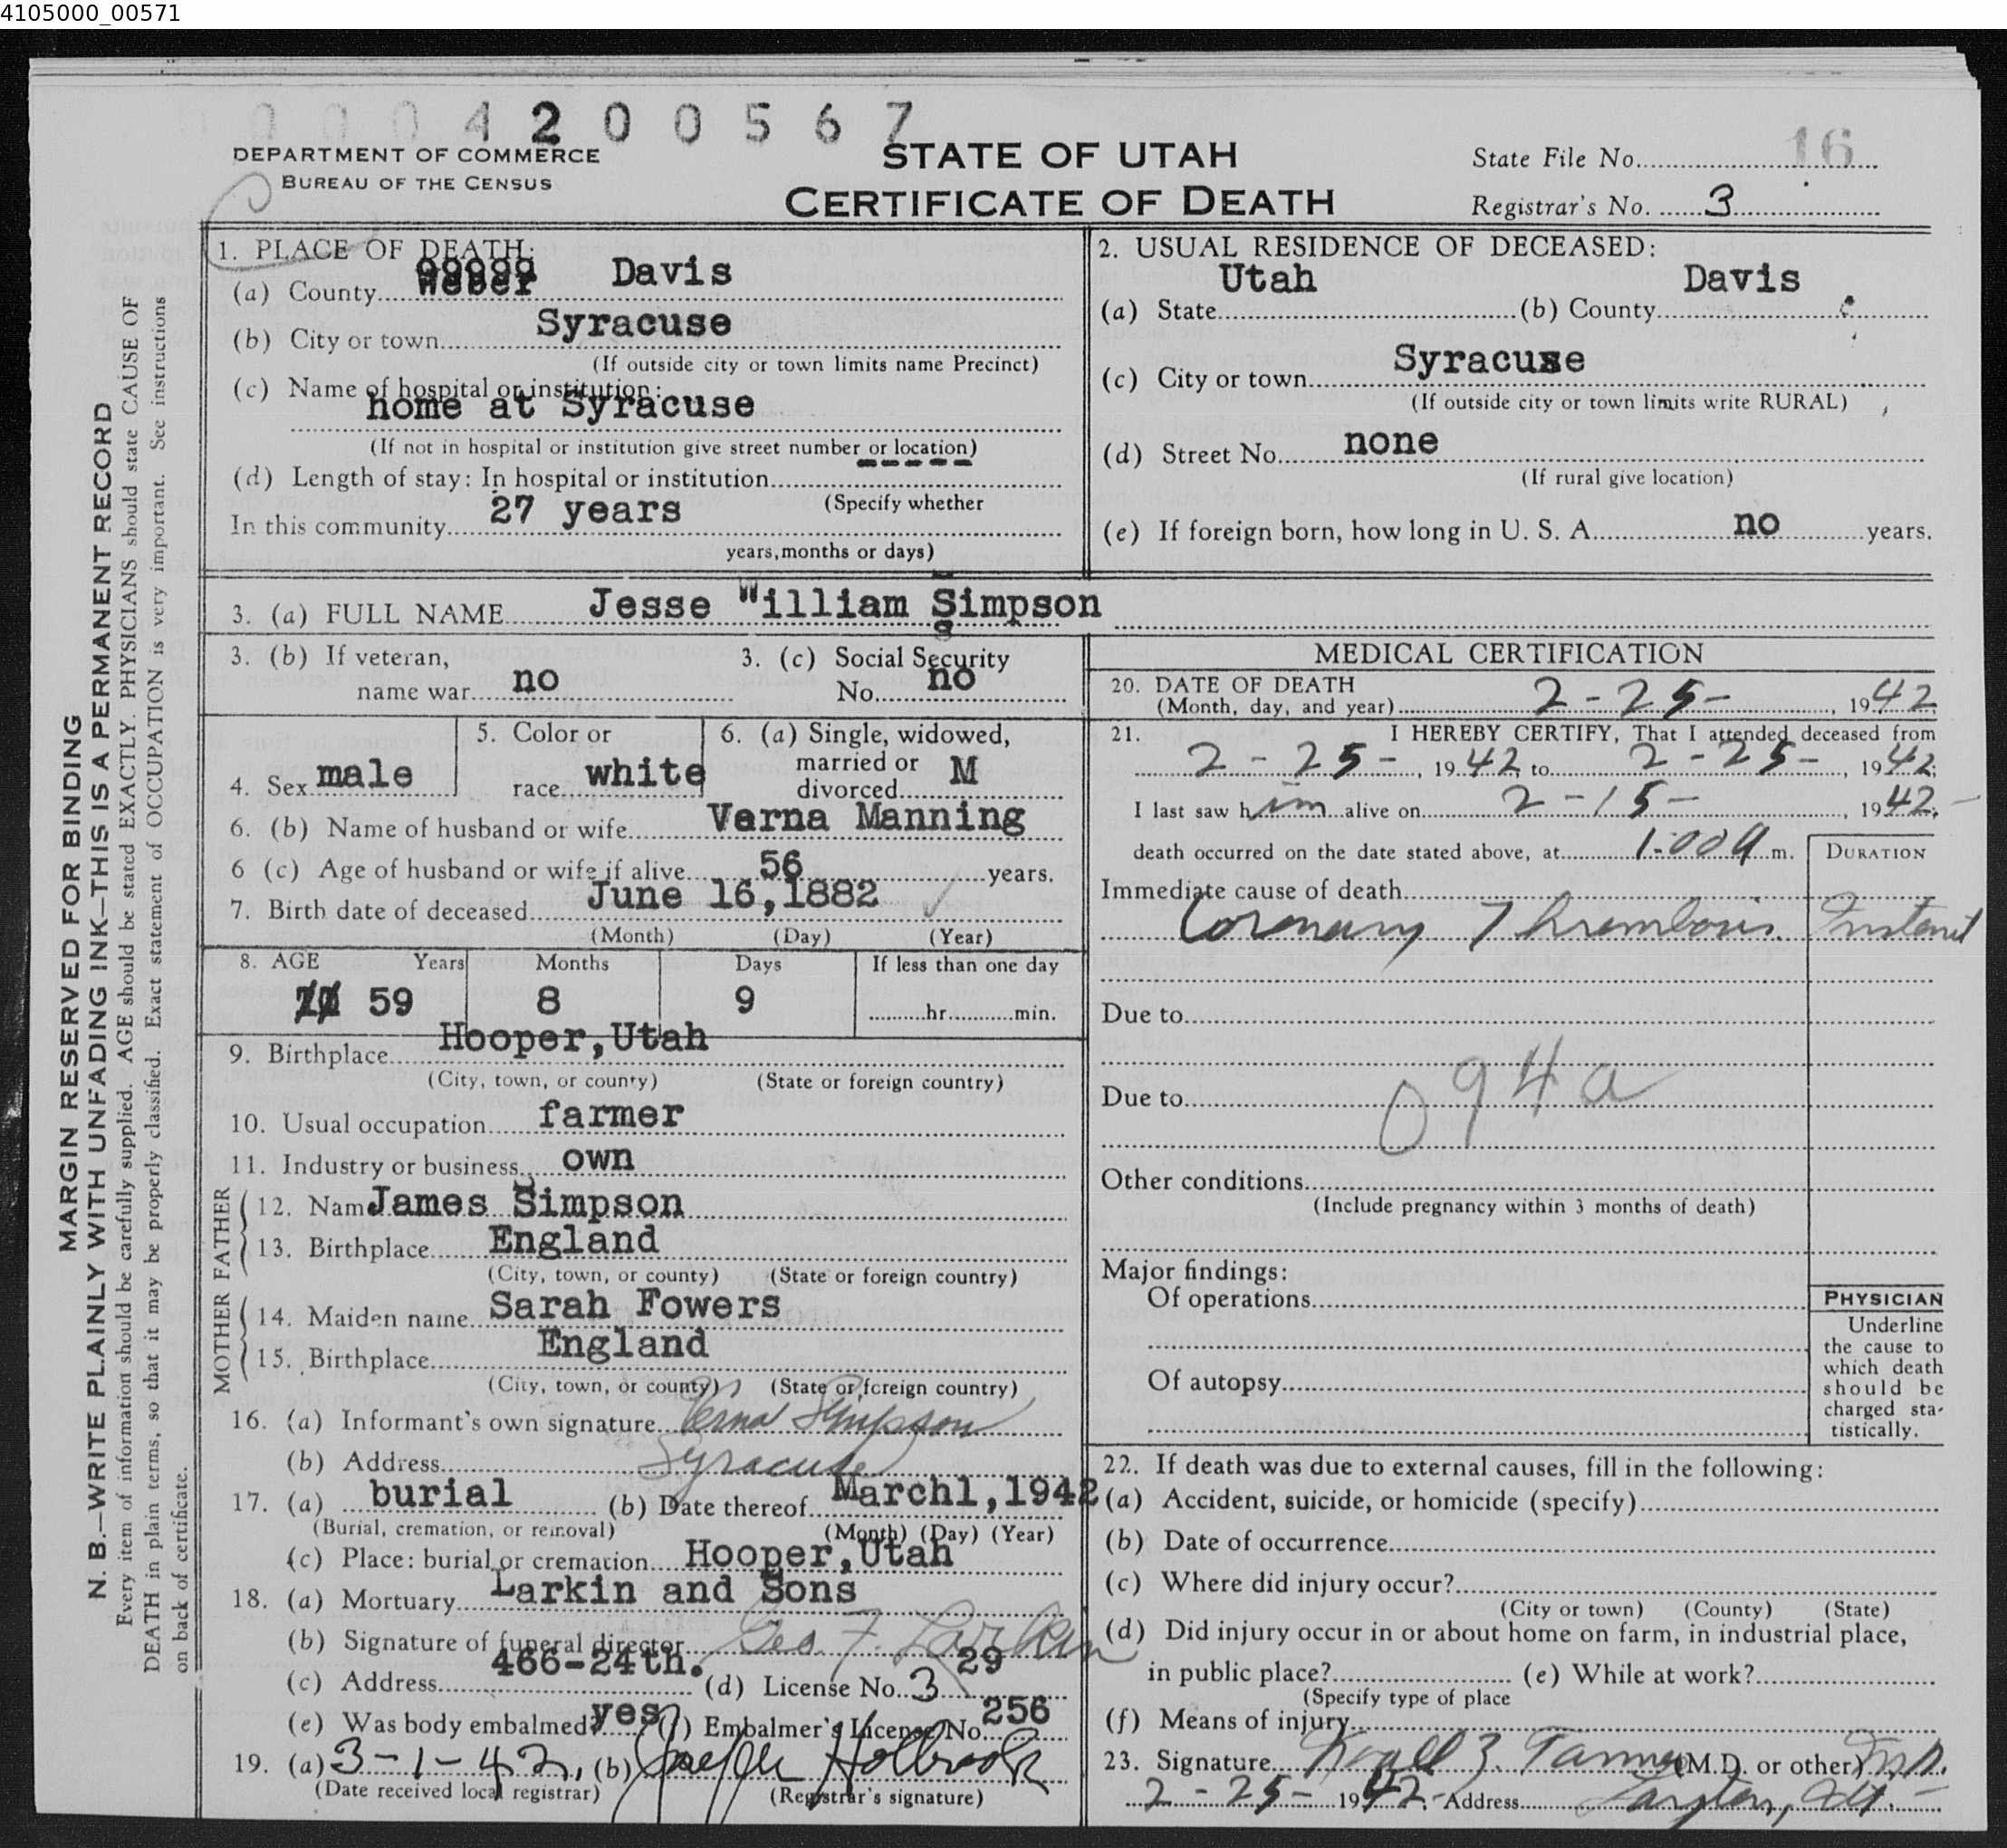 4105000_00571
0 0 0 0 4 2 0 0 5 6 7
DEPARTMENT OF COMMERCE
BUREAU OF THE CENSUS
STATE OF UTAH
CERTIFICATE OF DEATH
State File No. 16
Registrar's No. 3
MARGIN RESERVED FOR BINDING
N. B.—WRITE PLAINLY WITH UNFADING INK—THIS IS A PERMANENT RECORD
Every item of information should be carefully supplied. AGE should be stated EXACTLY. PHYSICIANS should state CAUSE OF
DEATH in plain terms, so that it may be properly classified. Exact statement of OCCUPATION is very important. See instructions
on back of certificate.
1. PLACE OF DEATH:
(a) County Weber Davis
(b) City or town Syracuse
(If outside city or town limits name Precinct)
(c) Name of hospital or institution:
home at Syracuse
(If not in hospital or institution give street number or location)
(d) Length of stay: In hospital or institution
(Specify whether
In this community 27 years
years, months or days)
2. USUAL RESIDENCE OF DECEASED:
(a) State Utah (b) County Davis
(c) City or town Syracuse
(If outside city or town limits write RURAL)
(d) Street No. none
(If rural give location)
(e) If foreign born, how long in U. S. A. no years.
3. (a) FULL NAME Jesse William Simpson
3. (b) If veteran,
name war no
3. (c) Social Security
No. no
4. Sex male
5. Color or
race white
6. (a) Single, widowed,
married or
divorced M
6. (b) Name of husband or wife Verna Manning
6 (c) Age of husband or wife if alive 56 years.
7. Birth date of deceased June 16,1882
(Month) (Day) (Year)
8. AGE Years Months Days If less than one day
59 8 9 hr. min.
9. Birthplace Hooper,Utah
(City, town, or county) (State or foreign country)
10. Usual occupation farmer
11. Industry or business own
FATHER
12. Name James Simpson
13. Birthplace England
(City, town, or county) (State or foreign country)
MOTHER
14. Maiden name Sarah Fowers
15. Birthplace England
(City, town, or county) (State or foreign country)
16. (a) Informant's own signature Verna Simpson
(b) Address Syracuse
17. (a) burial (b) Date thereof March1,1942
(Burial, cremation, or removal) (Month) (Day) (Year)
(c) Place: burial or cremation Hooper,Utah
18. (a) Mortuary Larkin and Sons
(b) Signature of funeral director Geo. F. Larkin
(c) Address 466-24th. (d) License No. 3 29
(e) Was body embalmed? yes (f) Embalmer's License No. 256
19. (a) 3-1-42, (b) Joseph Holbrook
(Date received local registrar) (Registrar's signature)
MEDICAL CERTIFICATION
20. DATE OF DEATH
(Month, day, and year) 2-25-, 1942
21. I HEREBY CERTIFY, That I attended deceased from
2-25-, 1942, to 2-25-, 1942;
I last saw him alive on 2-15-, 1942;
death occurred on the date stated above, at 1:00 a m.
DURATION
Immediate cause of death
Coronary Thrombosis. Instant
Due to
Due to 094a
Other conditions
(Include pregnancy within 3 months of death)
Major findings:
Of operations
Of autopsy
PHYSICIAN
Underline
the cause to
which death
should be
charged sta-
tistically.
22. If death was due to external causes, fill in the following:
(a) Accident, suicide, or homicide (specify)
(b) Date of occurrence
(c) Where did injury occur?
(City or town) (County) (State)
(d) Did injury occur in or about home on farm, in industrial place,
in public place? (e) While at work?
(Specify type of place
(f) Means of injury
23. Signature Z. Tanner (M.D. or other) M.D.
2-25-1942- Address Layton, Ut.